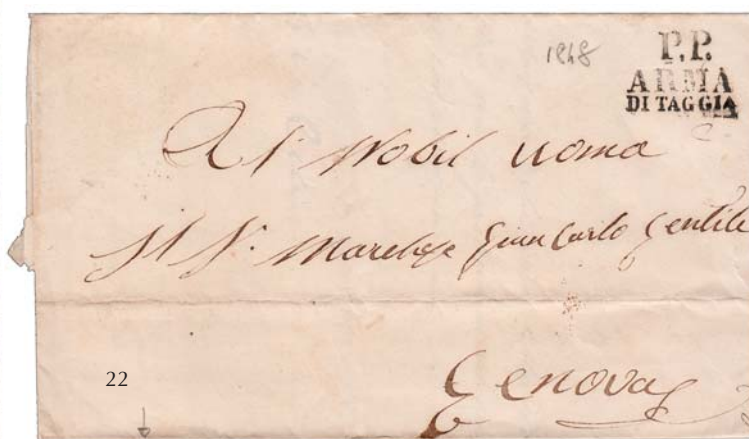 1848
P.P.
ARMA
DI TAGGIA
Al Nobil uomo
Il Sr. Marchese Gian Carlo Gentile
Genova
22